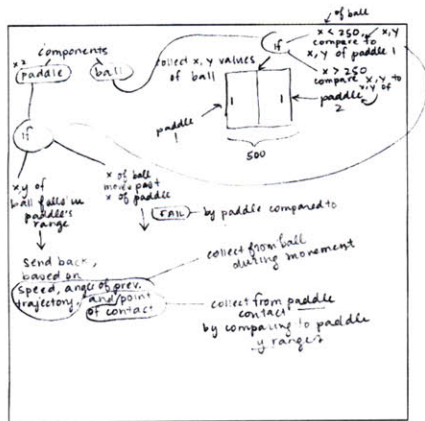 components
x2
paddle
ball
collect x, y values
of ball
of ball
if
x < 250, x,y
compare to
x, y of paddle 1
x > 250
compare x, y to
x,y of
paddle
2
paddle
1
500
if
x,y of
ball falls in
paddle's
range
x of ball
move past
x of paddle
FAIL
by paddle compared to
send back,
based on
speed, angle of prev.
trajectory, and point
of contact
collect from ball
during movement
collect from paddle
contact
by comparing to paddle
y range